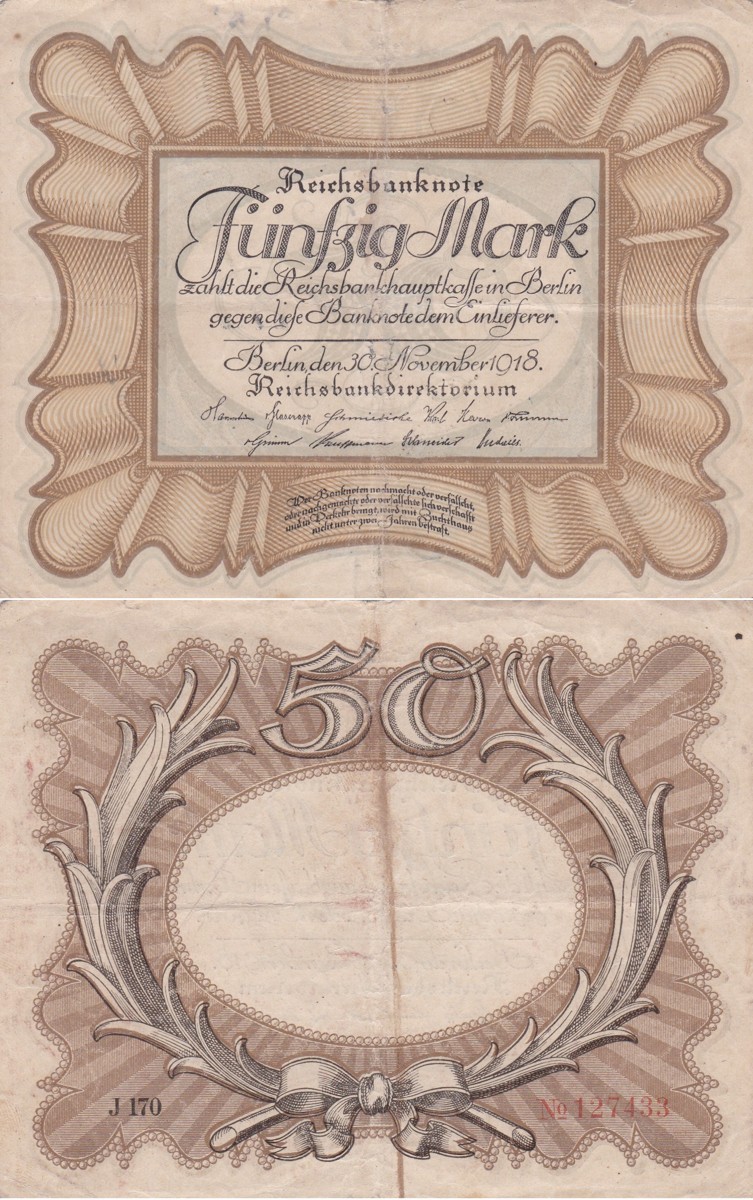 Reichsbanknote
Fünfzig Mark
zahlt die Reichsbankhauptkasse in Berlin
gegen diese Banknote dem Einlieferer.
Berlin, den 30. November 1918.
Reichsbankdirektorium
Havenstein Glasenapp Schmiedicke Korn
Grimm Kauffmann Schneider Budczies
Wer Banknoten nachmacht oder verfälscht,
oder nachgemachte oder verfälschte sich verschafft
und in Verkehr bringt, wird mit Zuchthaus
nicht unter zwei Jahren bestraft.
50
J 170
No 127433